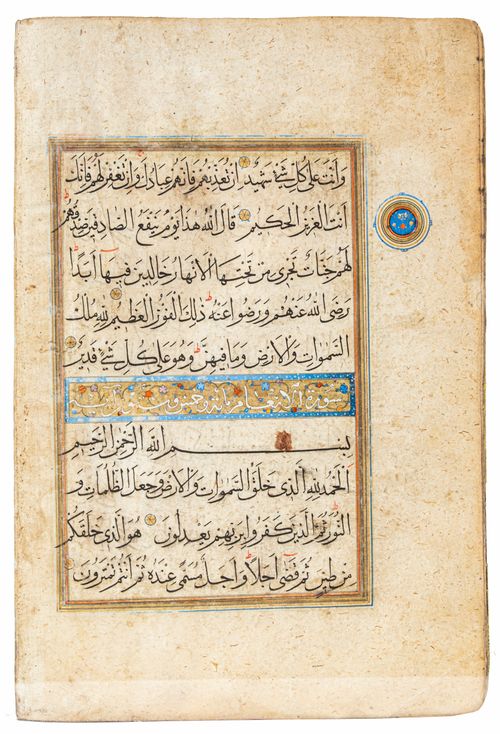 وَأَنتَ عَلَىٰ كُلِّ شَيْءٍ شَهِيدٌ إِن تُعَذِّبْهُمْ فَإِنَّهُمْ عِبَادُكَ وَإِن تَغْفِرْ لَهُمْ فَإِنَّكَ
أَنتَ الْعَزِيزُ الْحَكِيمُ قَالَ اللَّهُ هَذَا يَوْمُ يَنفَعُ الصَّادِقِينَ صِدْقُهُمْ
لَهُمْ جَنَّاتٌ تَجْرِي مِن تَحْتِهَا الْأَنْهَارُ خَالِدِينَ فِيهَا أَبَدًا
رَضِيَ اللَّهُ عَنْهُمْ وَرَضُوا عَنْهُ ذَلِكَ الْفَوْزُ الْعَظِيمُ لِلَّهِ مُلْكُ
السَّمَوَاتِ وَالْأَرْضِ وَمَا فِيهِنَّ وَهُوَ عَلَى كُلِّ شَيْءٍ قَدِيرٌ
سورة الانعام مائة و وستون آية
بِسْمِ اللَّهِ الرَّحْمَنِ الرَّحِيمِ
الْحَمْدُ لِلَّهِ الَّذِي خَلَقَ السَّمَوَاتِ وَالْأَرْضَ وَجَعَلَ الظُّلُمَاتِ وَ
النُّورَ ثُمَّ الَّذِينَ كَفَرُوا بِرَبِّهِمْ يَعْدِلُونَ هُوَ الَّذِي خَلَقَكُمْ
مِن طِينٍ ثُمَّ قَضَى أَجَلًا وَأَجَلٌ مُسَمًّى عِندَهُ ثُمَّ أَنتُمْ تَمْتَرُونَ